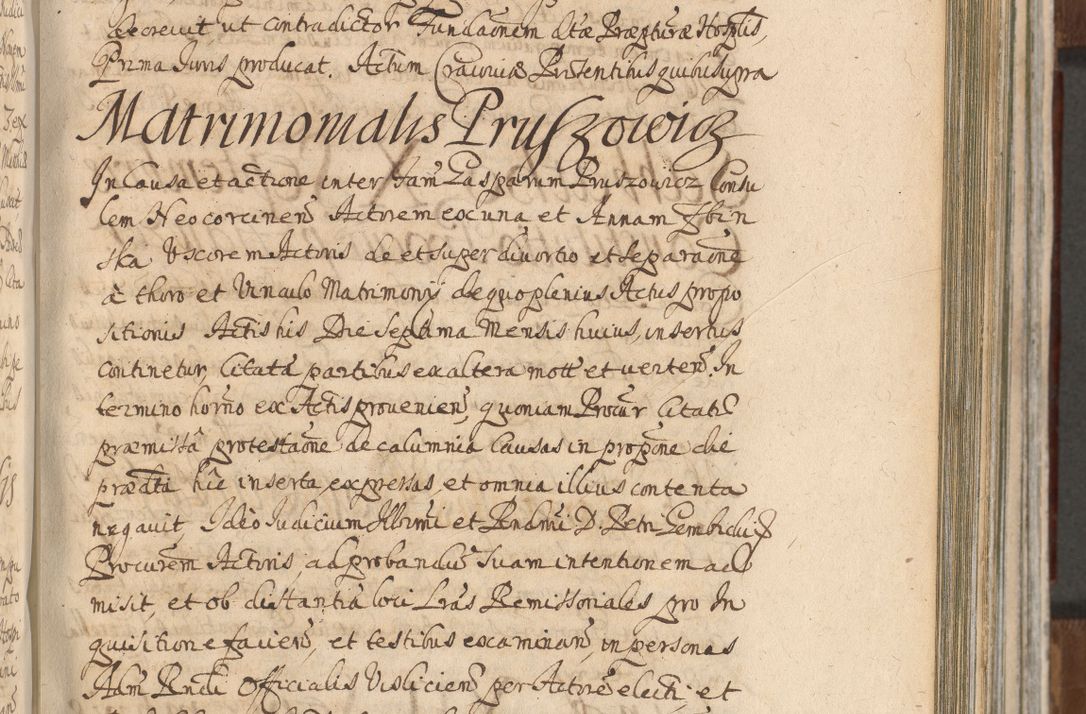 decrevit, ut contradictor Fundaõnem dtæ Præpturæ Hosplis,
Prima Juris producat. Actum Cracoviæ Præsentibus quibus supra
Matrimonialis Pruszowicz
In Causa et actione inter Fam Gasparum Pruszowicz Consu
lem Neocorcinen Actorem ex una et Annam Zbin
ska Uxorem Actoris de et super divortio et separaõne
à thoro et Vinculo Matrimonij de quo plenius Actus propo
sitionis Actis his Die Septima Mensis huius, insertus
continetur, Citatã partibus ex altera mott et verten. In
termino horno ex Actis provenien, quoniam Procur Citatæ
præmissâ protestaõne de calumnia Causas in propõne die
prædcta hîc inserta expressas, et omnia illius contenta
negavit, Ideò Judicium Illmi et Rndmi D. Petri Gembicki Eppi
Procurem Actoris, ad probandũ suam intentionem ad
misit, et ob distantiã loci Lras Remissoriales pro In
quisitione facien, et testibus examinan, in personas
Adm Rndi Officialis Visliciens per Actorẽ electi et